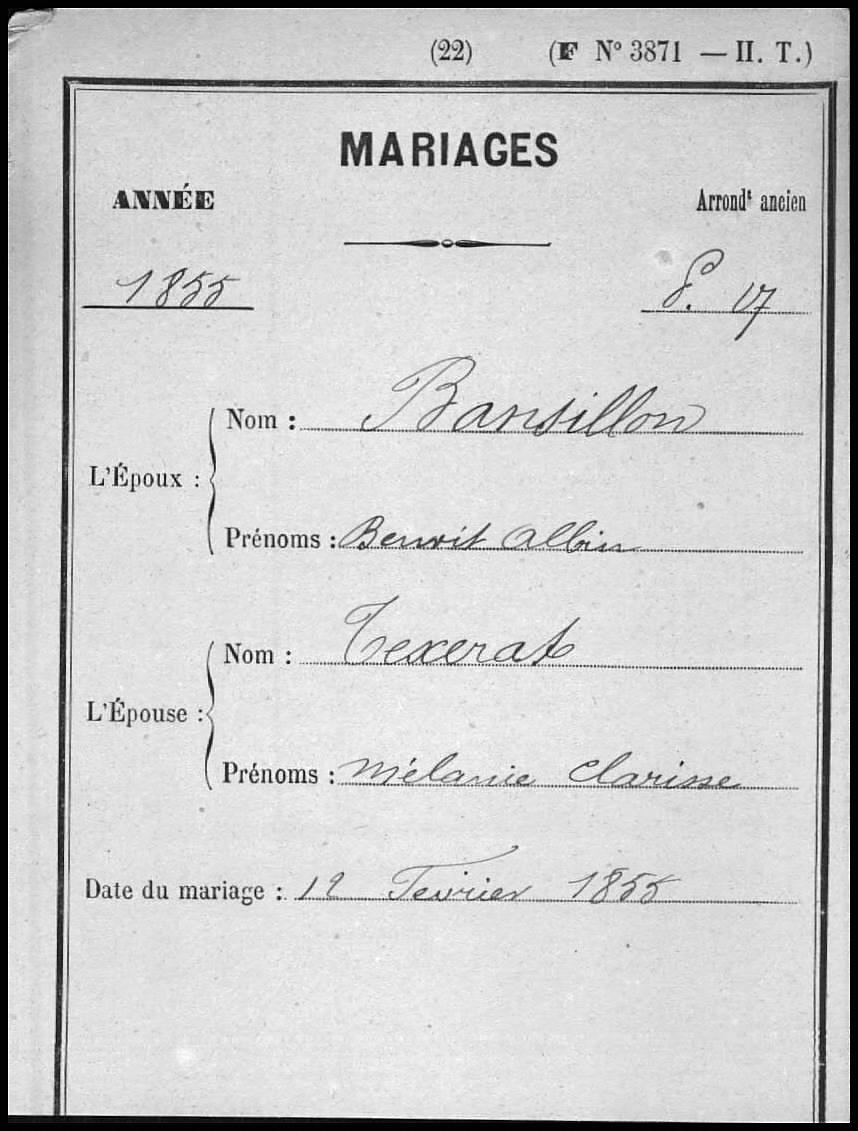 (22) (F N° 3871 — II. T.)
MARIAGES
ANNÉE Arrondt ancien
1855 P. 17
L'Époux :
Nom : Bansillon
Prénoms : Benoit Albin
L'Épouse :
Nom : Texerat
Prénoms : Mélanie Clarisse
Date du mariage : 12 Fevrier 1855